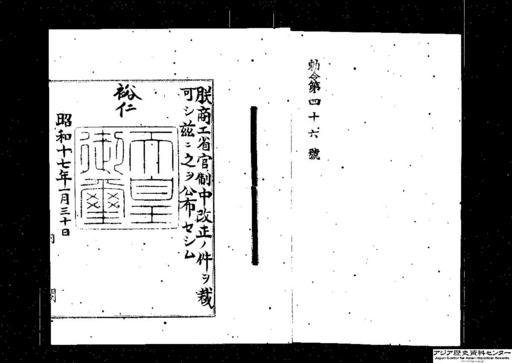 勅令第四十六號
朕商工省官制中改正ノ件ヲ裁
可シ茲ニ之ヲ公布セシム
裕仁
天皇
御璽
昭和十七年一月三十日
内
閣
アジア歴史資料センター
Japan Center for Asian Historical Records